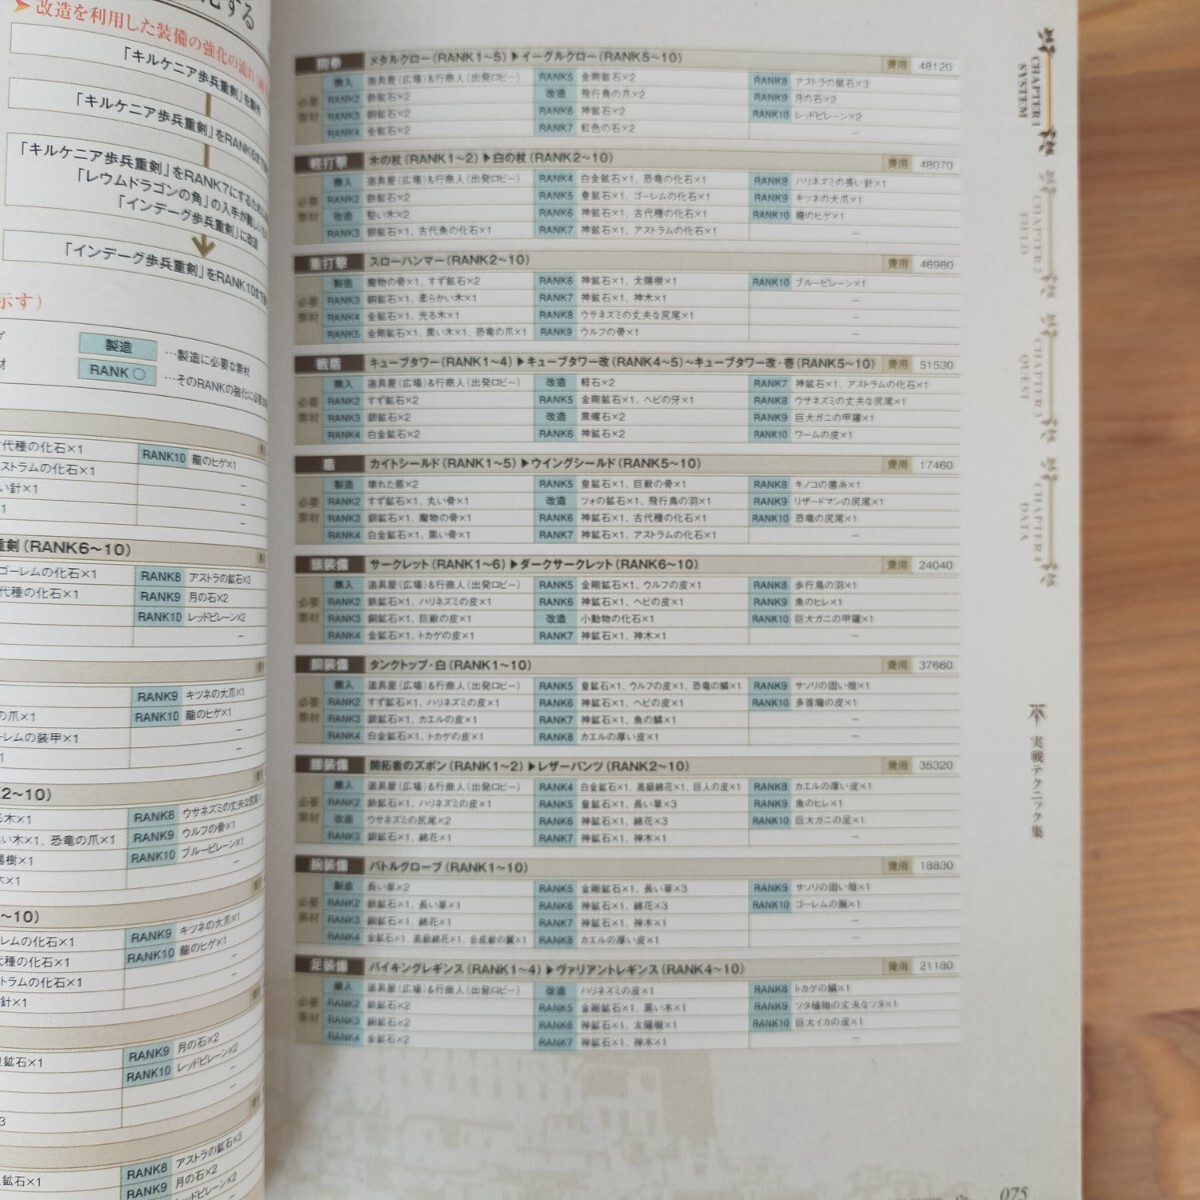 改造を利用した装備の強化の流れ
「キルケニア歩兵重剣」を製作
「キルケニア歩兵重剣」をRANK6
「キルケニア歩兵重剣」をRANK7にするため
「レウムドラゴンの角」の入手が難しい
「インデーグ歩兵重剣」に改造
「インデーグ歩兵重剣」をRANK10
示す）
製造 …製造に必要な素材
RANK○ …そのRANKの強化に必要
代種の化石×1 RANK10 龍のヒゲ×1
ストラムの化石×1 −
い針×1 −
×1 −
重剣（RANK6〜10）
ゴーレムの化石×1 RANK8 アストラの鉱石×3
代種の化石×1 RANK9 月の石×2
RANK10 レッドビレーン×2
RANK9 キツネの大爪×1
の爪×1 RANK10 龍のヒゲ×1
ーレムの装甲×1 −
2〜10）
る木×1 RANK8 ウサネズミの丈夫な
い木×1、恐竜の爪×1 RANK9 ウルフの骨×1
陽樹×1 RANK10 ブルービレーン×1
木×1 −
〜10）
レムの化石×1 RANK9 キツネの大爪×1
代種の化石×1 RANK10 龍のヒゲ×1
トラムの化石×1 −
針×1 −
鉱石×1 RANK9 月の石×2
RANK10 レッドビレーン×2
RANK8 アストラの鉱石×3
鉱石×1 RANK9 月の石×2
メタルクロー（RANK1〜5）▶イーグルクロー（RANK5〜10） 費用 48120
購入 道具屋（広場）&行商人（出発ロビー） RANK5 金剛鉱石×2 RANK8 アストラの鉱石×3
RANK2 鉄鉱石×2 改造 飛行鳥の爪×2 RANK9 月の石×2
RANK3 銅鉱石×2 RANK6 神鉱石×2 RANK10 レッドビレーン×2
RANK4 金鉱石×2 RANK7 虹色の石×2 −
軽打撃 木の杖（RANK1〜2）▶白の杖（RANK2〜10） 費用 48070
購入 道具屋（広場）&行商人（出発ロビー） RANK4 白金鉱石×1、恐竜の化石×1 RANK8 ハリネズミの長い針×1
RANK2 鉄鉱石×2 RANK5 皇鉱石×1、ゴーレムの化石×1 RANK9 キツネの大爪×1
改造 堅い木×2 RANK6 神鉱石×1、古代種の化石×1 RANK10 龍のヒゲ×1
RANK3 銀鉱石×1、古代魚の化石×1 RANK7 神鉱石×1、アストラムの化石×1 −
重打撃 スローハンマー（RANK2〜10） 費用 46980
製造 魔物の骨×1、すず鉱石×2 RANK6 神鉱石×1、太陽樹×1 RANK10 ブルービレーン×1
RANK3 銅鉱石×1、柔らかい木×1 RANK7 神鉱石×1、神木×1 −
RANK4 金鉱石×1、光る木×1 RANK8 ウサネズミの丈夫な尻尾×1 −
RANK5 金剛鉱石×1、黒い木×1、恐竜の爪×1 RANK9 ウルフの骨×1 −
戦盾 キューブタワー（RANK1〜4）▶キューブタワー改（RANK4〜5）〜キューブタワー改・壱（RANK5〜10） 費用 51530
購入 道具屋（広場）&行商人（出発ロビー） 改造 軽石×2 RANK7 神鉱石×1、アストラムの化石×1
RANK2 すず鉱石×2 RANK5 金剛鉱石×1、ヘビの牙×1 RANK8 ウサネズミの丈夫な尻尾×1
RANK3 銀鉱石×2 改造 黒曜石×2 RANK9 巨大ガニの甲羅×1
RANK4 白金鉱石×2 RANK6 神鉱石×2 RANK10 ワームの皮×1
盾 カイトシールド（RANK1〜5）▶ウイングシールド（RANK5〜10） 費用 17460
製造 壊れた盾×2 RANK5 皇鉱石×1、巨獣の骨×1 RANK8 キノコの菌糸×1
RANK2 すず鉱石×1、丸い骨×1 改造 ツォの鉱石×1、飛行鳥の羽×1 RANK9 リザードマンの尻尾×1
RANK3 銀鉱石×1、魔物の骨×1 RANK6 神鉱石×1、古代種の化石×1 RANK10 恐竜の尻尾×1
RANK4 白金鉱石×1、黒い骨×1 RANK7 神鉱石×1、アストラムの化石×1 −
頭装備 サークレット（RANK1〜6）▶ダークサークレット（RANK6〜10） 費用 24040
購入 道具屋（広場）&行商人（出発ロビー） RANK5 金剛鉱石×1、ウルフの皮×1 RANK8 歩行鳥の羽×1
RANK2 鉄鉱石×1、ハリネズミの皮×1 RANK6 神鉱石×1、ヘビの皮×1 RANK9 魚のヒレ×1
RANK3 銅鉱石×1、巨獣の皮×1 改造 小動物の化石×1 RANK10 巨大ガニの甲羅×1
RANK4 金鉱石×1、トカゲの皮×1 RANK7 神鉱石×1、神木×1 −
胴装備 タンクトップ・白（RANK1〜10） 費用 37660
購入 道具屋（広場）&行商人（出発ロビー） RANK5 皇鉱石×1、ウルフの皮×1、恐竜の鱗×1 RANK9 サソリの固い殻×1
RANK2 すず鉱石×1、ハリネズミの皮×1 RANK6 神鉱石×1、ヘビの皮×1 RANK10 多首龍の皮×1
RANK3 銀鉱石×1、カエルの皮×1 RANK7 神鉱石×1、魚の鱗×1 −
RANK4 白金鉱石×1、トカゲの皮×1 RANK8 カエルの厚い皮×1 −
腰装備 開拓者のズボン（RANK1〜2）▶レザーパンツ（RANK2〜10） 費用 35320
購入 道具屋（広場）&行商人（出発ロビー） RANK4 白金鉱石×1、高級綿花×1、巨人の皮×1 RANK8 カエルの厚い皮×1
RANK2 鉄鉱石×1、ハリネズミの皮×1 RANK5 皇鉱石×1、長い草×3 RANK9 魚のヒレ×1
改造 ウサネズミの尻尾×2 RANK6 神鉱石×1、綿花×3 RANK10 巨大ガニの足×1
RANK3 銀鉱石×1、綿花×1 RANK7 神鉱石×1、神木×1 −
腕装備 バトルグローブ（RANK1〜10） 費用 18830
製造 長い草×2 RANK5 金剛鉱石×1、長い草×3 RANK9 サソリの固い殻×1
RANK2 鉄鉱石×1、長い草×1 RANK6 神鉱石×1、綿花×3 RANK10 ゴーレムの腕×1
RANK3 銅鉱石×1、綿花×1 RANK7 神鉱石×1、神木×1 −
RANK4 金鉱石×1、高級綿花×1、合成獣の翼×1 RANK8 カエルの厚い皮×1 −
足装備 バイキングレギンス（RANK1〜4）▶ヴァリアントレギンス（RANK4〜10） 費用 21180
購入 道具屋（広場）&行商人（出発ロビー） 改造 ハリネズミの皮×1 RANK8 トカゲの鱗×1
RANK2 鉄鉱石×2 RANK5 金剛鉱石×1、黒い木×1 RANK9 ツタ植物の丈夫なツタ×1
RANK3 銅鉱石×2 RANK6 神鉱石×1、太陽樹×1 RANK10 巨大イカの皮×1
RANK4 金鉱石×2 RANK7 神鉱石×1、神木×1 −
CHAPTER 1
SYSTEM
CHAPTER 2
FIELD
CHAPTER 3
QUEST
CHAPTER 4
DATA
実戦テクニック集
075